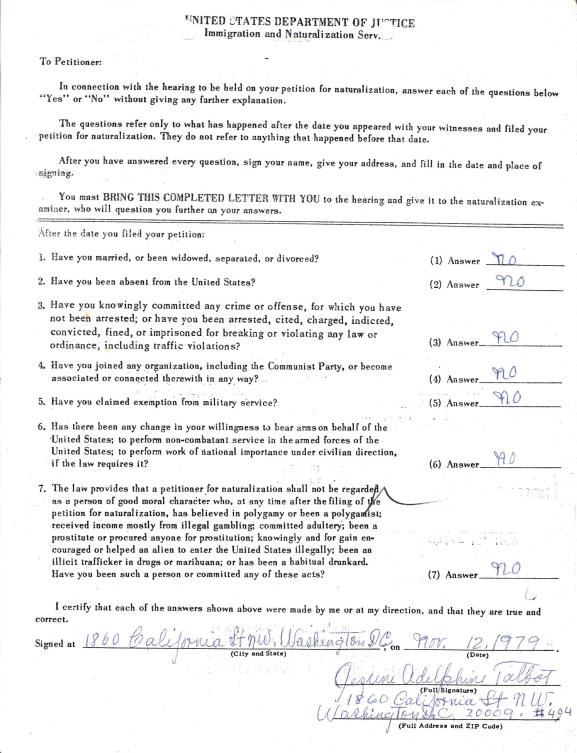 UNITED STATES DEPARTMENT OF JUSTICE
Immigration and Naturalization Serv.
To Petitioner:
In connection with the hearing to be held on your petition for naturalization, answer each of the questions below
"Yes" or "No" without giving any further explanation.
The questions refer only to what has happened after the date you appeared with your witnesses and filed your
petition for naturalization. They do not refer to anything that happened before that date.
After you have answered every question, sign your name, give your address, and fill in the date and place of
signing.
You must BRING THIS COMPLETED LETTER WITH YOU to the hearing and give it to the naturalization ex-
aminer, who will question you further on your answers.
After the date you filed your petition:
1. Have you married, or been widowed, separated, or divorced? (1) Answer no
2. Have you been absent from the United States? (2) Answer no
3. Have you knowingly committed any crime or offense, for which you have
not been arrested; or have you been arrested, cited, charged, indicted,
convicted, fined, or imprisoned for breaking or violating any law or
ordinance, including traffic violations? (3) Answer no
4. Have you joined any organization, including the Communist Party, or become
associated or connected therewith in any way? (4) Answer no
5. Have you claimed exemption from military service? (5) Answer no
6. Has there been any change in your willingness to bear arms on behalf of the
United States; to perform non-combatant service in the armed forces of the
United States; to perform work of national importance under civilian direction,
if the law requires it? (6) Answer no
7. The law provides that a petitioner for naturalization shall not be regarded
as a person of good moral character who, at any time after the filing of the
petition for naturalization, has believed in polygamy or been a polygamist;
received income mostly from illegal gambling; committed adultery; been a
prostitute or procured anyone for prostitution; knowingly and for gain en-
couraged or helped an alien to enter the United States illegally; been an
illicit trafficker in drugs or marihuana; or has been a habitual drunkard.
Have you been such a person or committed any of these acts? (7) Answer no
I certify that each of the answers shown above were made by me or at my direction, and that they are true and
correct.
Signed at 1860 California St NW. Washington DC, on Nov. 12, 1979
(City and State) (Date)
Adelphine Talbot
(Full Signature)
1860 California St NW.
Washington D.C. 20009. #404
(Full Address and ZIP Code)